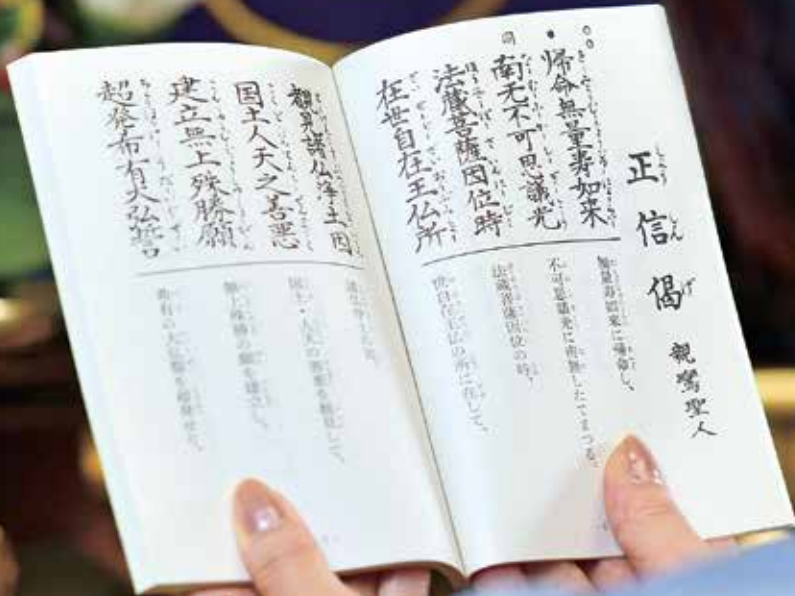 正信偈
親鸞聖人
帰命無量壽如来
南无不可思議光
法蔵菩薩因位時
在世自在王仏所
無量寿如来に帰命し、
不可思議光に南無したてまつる。
法蔵菩薩因位の時、
世自在王仏の所に在して、
覩見諸仏浄土因
国土人天之善悪
建立無上殊勝願
超発希有大弘誓
諸仏浄土の因、
国土・人天の善悪を覩見して、
無上殊勝の願を建立し、
希有の大弘誓を超発せり。